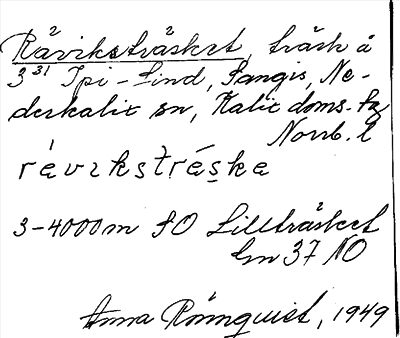 Räviksträsket, träsk å
3 31 Tpi-Lind, Sangis, Ne-
derkalix sn, Kalix doms. tg
Norrb. l
révikstrése
3-4000 m SO Lillträsket
lm 37 NO
Anna Rönnquist, 1949